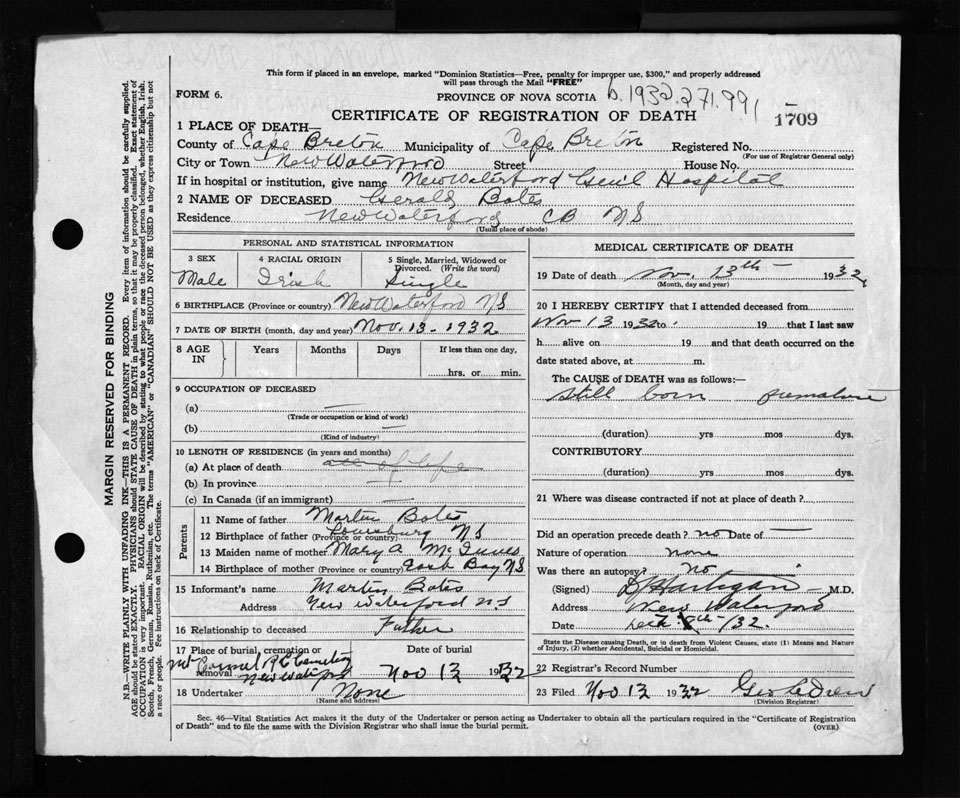 This form if placed in an envelope, marked "Dominion Statistics—Free, penalty for improper use, $300," and properly addressed
will pass through the Mail "FREE"
FORM 6.
PROVINCE OF NOVA SCOTIA b.1932.271.991
CERTIFICATE OF REGISTRATION OF DEATH 1709
1 PLACE OF DEATH—
County of Cape Breton Municipality of Cape Breton Registered No.
(For use of Registrar General only)
City or Town New Waterford Street House No.
If in hospital or institution, give name New Waterford Gen'l Hospital
2 NAME OF DECEASED Gerald Bates
Residence New Waterford CB NS
(Usual place of abode)
PERSONAL AND STATISTICAL INFORMATION
3 SEX 4 RACIAL ORIGIN 5 Single, Married, Widowed or Divorced. (Write the word)
Male Irish Single
6 BIRTHPLACE (Province or country) New Waterford NS
7 DATE OF BIRTH (month, day and year) Nov. 13 - 1932
8 AGE IN Years Months Days If less than one day,
hrs. or min.
9 OCCUPATION OF DECEASED
(a) —
(Trade or occupation or kind of work)
(b) —
(Kind of industry)
10 LENGTH OF RESIDENCE (in years and months)
(a) At place of death all of life
(b) In province —
(c) In Canada (if an immigrant) —
Parents
11 Name of father Martin Bates
12 Birthplace of father (Province or country) Louisburg NS
13 Maiden name of mother Mary A McInnes
14 Birthplace of mother (Province or country) Bay NS
15 Informant's name Martin Bates
Address New Waterford NS
16 Relationship to deceased Father
17 Place of burial, cremation or removal Date of burial
Mt Carmel R C Cemetery
New Waterford Nov 13 1932
18 Undertaker None
(Name and address)
MEDICAL CERTIFICATE OF DEATH
19 Date of death Nov. 13th 1932
(Month, day and year)
20 I HEREBY CERTIFY that I attended deceased from
Nov 13 1932 to 19 that I last saw
h alive on 19 and that death occurred on the
date stated above, at m.
The CAUSE of DEATH was as follows:—
still born premature
(duration) yrs mos dys.
CONTRIBUTORY
(duration) yrs mos dys.
21 Where was disease contracted if not at place of death?
Did an operation precede death? no Date of —
Nature of operation none
Was there an autopsy? No
(Signed) Hartigan M.D.
Address New Waterford
Date 8th /32.
State the Disease causing Death, or in death from Violent Causes, state (1) Means and Nature
of Injury, (2) whether Accidental, Suicidal or Homicidal.
22 Registrar's Record Number
23 Filed Nov 13 1932 Geo
(Division Registrar)
Sec. 46—Vital Statistics Act makes it the duty of the Undertaker or person acting as Undertaker to obtain all the particulars required in the "Certificate of Registration
of Death" and to file the same with the Division Registrar who shall issue the burial permit. (OVER)
MARGIN RESERVED FOR BINDING
N.B.—WRITE PLAINLY WITH UNFADING INK—THIS IS A PERMANENT RECORD. Every item of information should be carefully supplied.
AGE should be stated EXACTLY. PHYSICIANS should STATE CAUSE OF DEATH in plain terms, so that it may be properly classified. Exact statement of
OCCUPATION is very important. RACIAL ORIGIN will be described by stating to what people or race the deceased person belonged, whether English, Irish,
Scotch, French, German, Russian, Ruthenian, etc. The terms "AMERICAN" or "CANADIAN" SHOULD NOT BE USED as they express citizenship but not
a race or people. Fee instructions on back of Certificate.